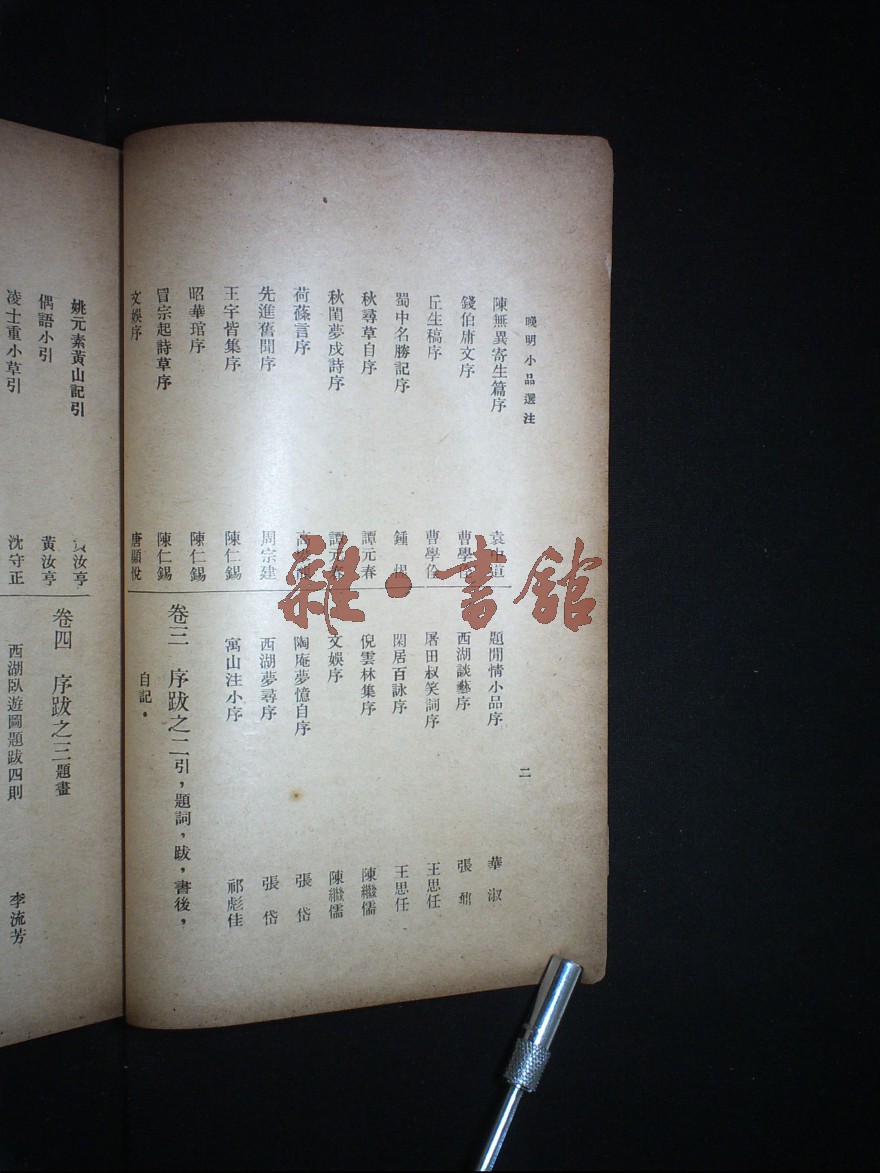 晚明小品選注
二
陳無異寄生篇序 袁中道
錢伯庸文序 曹學佺
丘生稿序 曹學佺
蜀中名勝記序 鍾惺
秋尋草自序 譚元春
秋閨夢戍詩序 譚元春
荷蓧言序
先進舊聞序 周宗建
王宇皆集序 陳仁錫
昭華琯序 陳仁錫
冒宗起詩草序 陳仁錫
文娛序 唐顯悅
題閒情小品序 華淑
西湖談藝序 張鼐
屠田叔笑詞序 王思任
閑居百詠序 王思任
倪雲林集序 陳繼儒
文娛序 陳繼儒
陶庵夢憶自序 張岱
西湖夢尋序 張岱
寓山注小序 祁彪佳
卷三 序跋之二引，題詞，跋，書後，
自記。
姚元素黃山記引 黃汝亨
偶語小引 黃汝亨
凌士重小草引 沈守正
卷四 序跋之三題畫
西湖臥遊圖題跋四則 李流芳
雜·書館